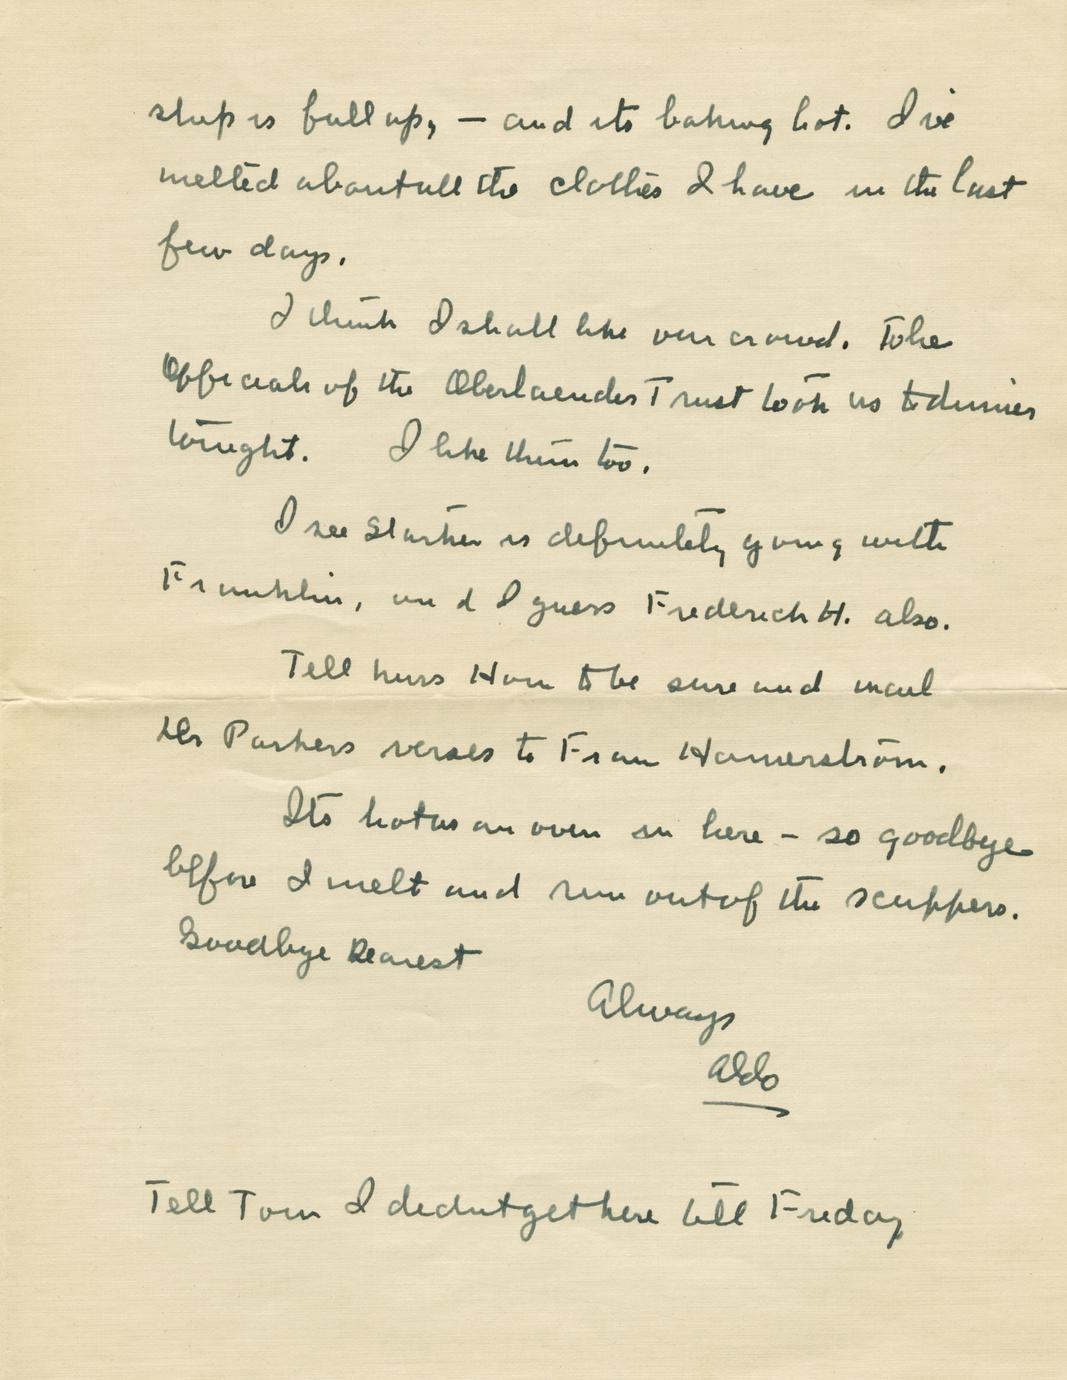 ship is full up, — and its baking hot. I've
melted about all the clothes I have in the last
few days.
I think I shall like our crowd. The
Officials of the Oberlaender Trust took us to dinner
tonight. I like them too.
I see Starker is definitely going with
Franklin, and I guess Frederich H. also.
Tell Miss Horn to be sure and mail
Mr Parkers verses to Frau Hamerström.
Its hot as an oven in here – so goodbye
before I melt and run out of the scuppers.
Goodbye Dearest
Always
Aldo
Tell Tom I didnt get here till Friday